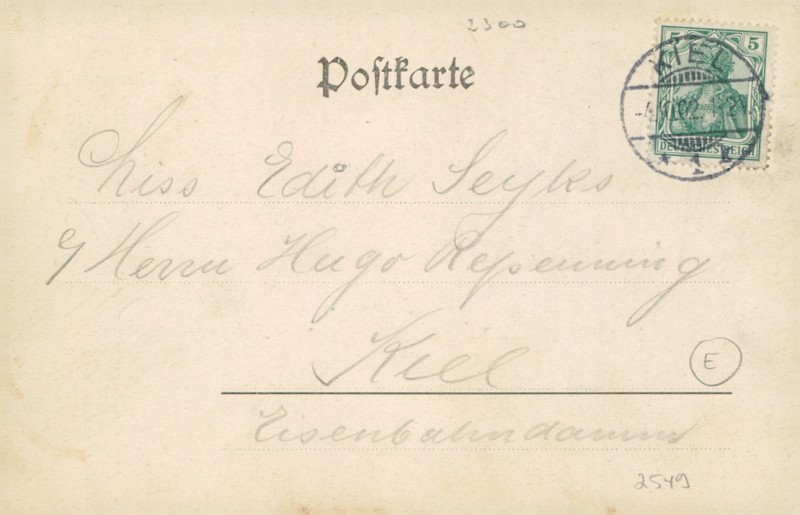 2300
Postkarte
5 5
KIEL
02
DEUTSCHES REICH
1
Miss Edith Seyks
Herrn Hugo Repenning
Kiel
E
Eisenbahndamm
2549